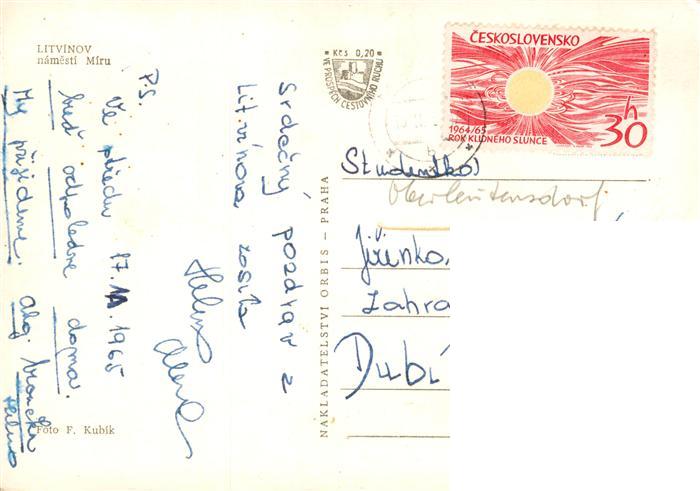 LITVÍNOV
náměstí Míru
Srdečný pozdrav z
Litvínova zasílá
Helena
Alena
P.S.
Ve středu 17.11.1965
buď odpoledne doma.
My přijdeme. Ahoj
Helena
Foto F. Kubík
NAKLADATELSTVÍ ORBIS – PRAHA
Kčs 0,20
VE PROSPĚCH CESTOVNÍHO RUCHU
ČESKOSLOVENSKO
1964/65
ROK KLIDNÉHO SLUNCE
30 h
Studentka
Oberleutensdorf
Jiřinko
Zahra
Dubí